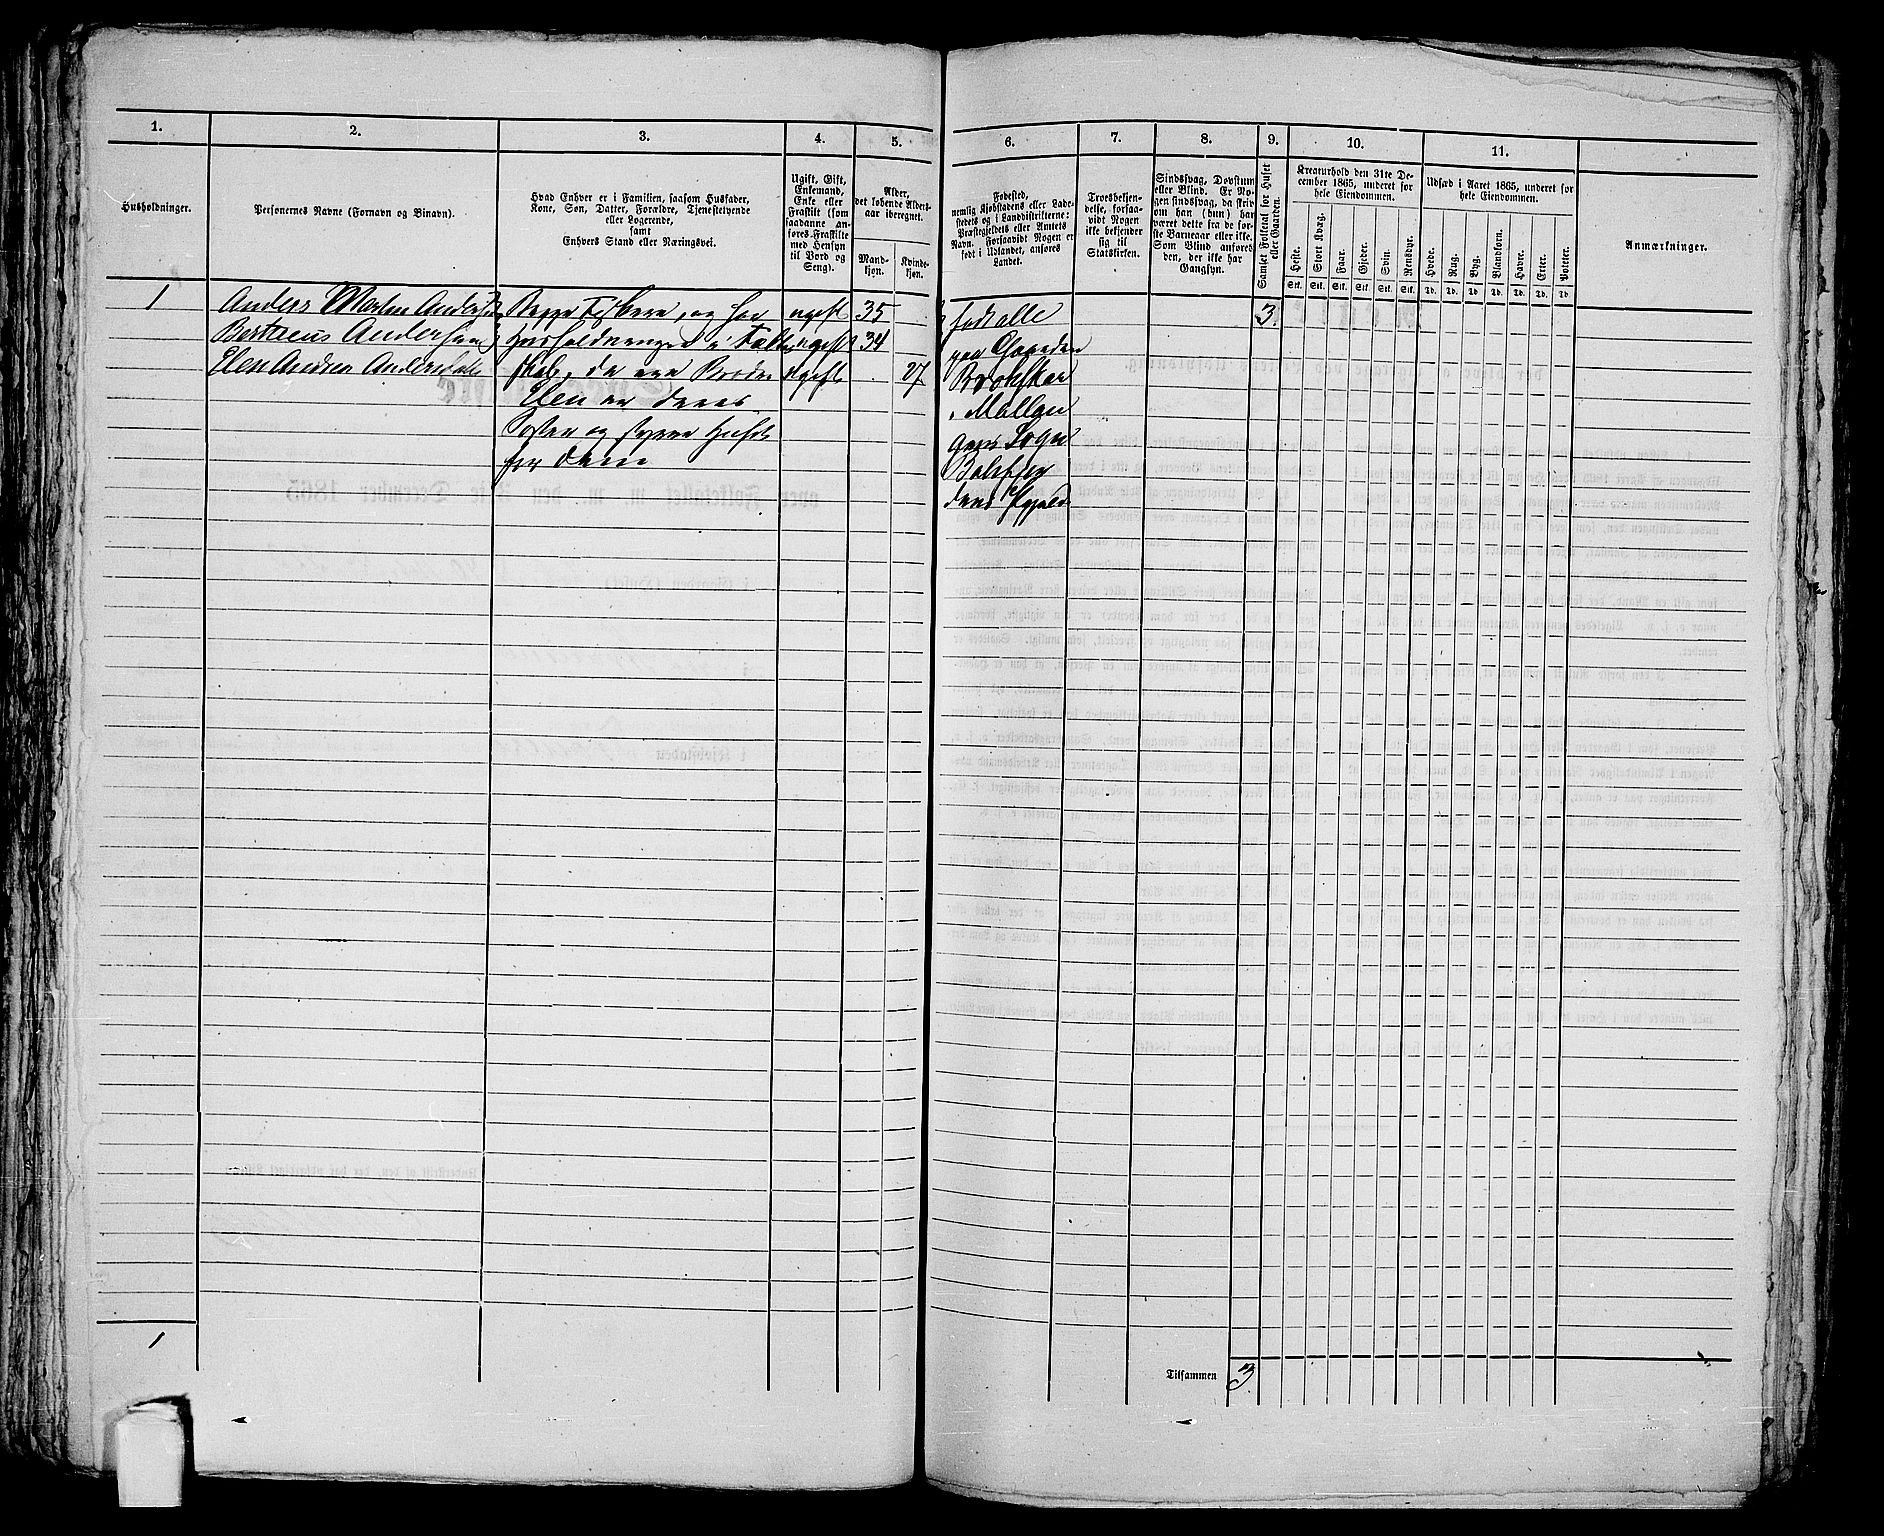 1.
2.
3.
4.
5.
Husholdninger.
Personernes Navne (Fornavn og Binavn).
Hvad Enhver er i Familien, saasom Husfader,
Kone, Søn, Datter, Forældre, Tjenestetyende
eller Logerende,
samt
Enhvers Stand eller Næringsvei.
Ugift, Gift,
Enkemand,
Enke eller
Fraskilt (som
saadanne an-
føres Fraskilte
med Hensyn
til Bord og
Seng).
Alder,
det løbende Alders-
aar iberegnet.
Mand-
kjøn.
Kvinde-
kjøn.
1 Anders Martin Anders Beppe Fiskere, og har ugift 35
Bertheus Andersen Husholdningen i Fælles ugift 34
Elen Andrea Andersdatter skab, de ere Brødre Ugift 27
Elen er deres
Søster og styrer Huset
for dem
1
6.
7.
8.
9.
10.
11.
Fødested,
nemlig Kjøbstadens eller Lade-
stedets og i Landdistrikterne:
Præstegjeldets eller Amtets
Navn. Forsaavidt Nogen er
født i Udlandet, anføres
Landet.
Troesbekjen-
delse, forsaa-
vidt Nogen
ikke bekjender
sig til
Statskirken.
Sindssvag, Døvstum
eller Blind. Er No-
gen sindssvag, da skriv
om han (hun) har
været dette fra de før-
ste Barneaar eller ikke.
Som Blind anføres
den, der ikke har
Gangsyn.
Samlet Folketal for Huset
eller Gaarden.
Kreaturhold den 31te De-
cember 1865, underet for
hele Eiendommen.
Heste.
Stort Kvæg.
Faar.
Gjeder.
Svin.
Rensdyr.
Stk. Stk. Stk. Stk. Stk. Stk.
Udsæd i Aaret 1865, underet for
hele Eiendommen.
Hvede.
Rug.
Byg.
Blandkorn.
Havre.
Erter.
Poteter.
Td. Td. Td. Td. Td. Td. Td
Anmærkninger.
født alle 3.
paa Gaarden
i
Sogn
Tilsammen 3